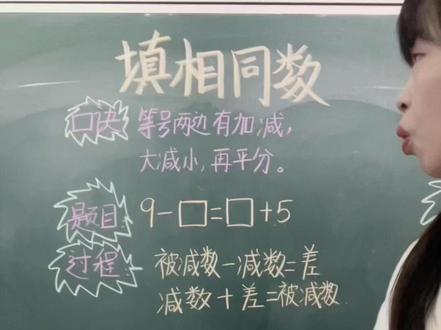 填相同数
口诀 等号两边有加减，
大减小，再平分。
题目 9-□=□+5
过程 被减数-减数=差
减数+差=被减数